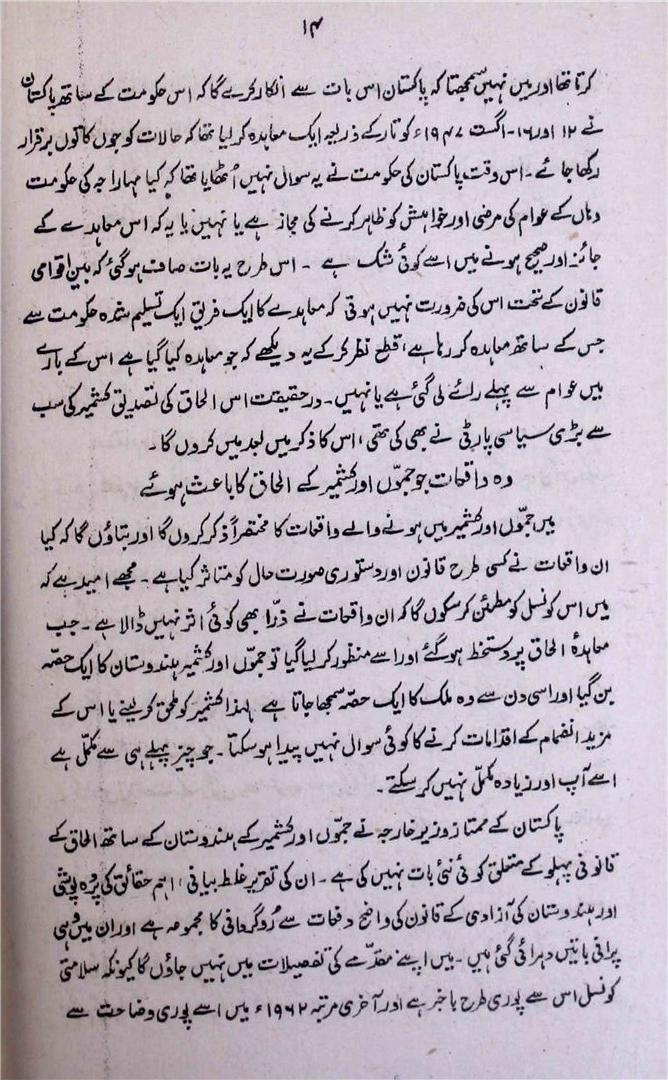 ۱۴
کرتا تھا اور میں نہیں سمجھتا کہ پاکستان اس بات سے انکار کرے گا کہ اس حکومت کے ساتھ پاکستان
نے ۱۲ اور ۱۶۔ اگست ۱۹۴۷ء کو تار کے ذریعہ ایک معاہدہ کر لیا تھا کہ حالات کو جوں کا توں برقرار
رکھا جائے۔ اس وقت پاکستان کی حکومت نے یہ سوال نہیں اُٹھایا تھا کہ کیا مہاراجہ کی حکومت
وہاں کے عوام کی مرضی اور خواہش کو ظاہر کرنے کی مجاز ہے یا نہیں یا یہ کہ اس معاہدے کے
جائز اور صحیح ہونے میں اسے کوئی شک ہے ۔ اس طرح یہ بات صاف ہو گئی کہ بین اقوامی
قانون کے تحت اس کی ضرورت نہیں ہوتی کہ معاہدے کا ایک فریق ایک تسلیم شدہ حکومت سے
جس کے ساتھ معاہدہ کر رہا ہے، قطع نظر کر کے یہ دیکھے کہ جو معاہدہ کیا گیا ہے اس کے بارے
میں عوام سے پہلے رائے لی گئی ہے یا نہیں۔ در حقیقت اس الحاق کی تصدیق کشمیر کی سب
سے بڑی سیاسی پارٹی نے بھی کی تھی، اس کا ذکر میں بعد میں کروں گا۔
وہ واقعات جو جموّں اور کشمیر کے الحاق کا باعث ہوئے
میں جموّں اور کشمیر میں ہونے والے واقعات کا مختصراً ذکر کروں گا اور بتاؤں گا کہ کیا
ان واقعات نے کسی طرح قانون اور دستوری صورت حال کو متاثر کیا ہے۔ مجھے امید ہے کہ
میں اس کونسل کو مطمئن کر سکوں گا کہ ان واقعات نے ذرّا بھی کوئی اثر نہیں ڈالا ہے ۔ جب
معاہدۂ الحاق پر دستخط ہو گئے اور اسے منظور کر لیا گیا تو جموّں اور کشمیر ہندوستان کا ایک حصّہ
بن گیا اور اسی دن سے وہ ملک کا ایک حصّہ سمجھا جاتا ہے لہٰذا کشمیر کو ملحق کر لینے یا اس کے
مزید انضمام کے اقدامات کرنے کا کوئی سوال نہیں پیدا ہو سکتا۔ جو چیز پہلے ہی سے مکمّل ہے
اسے آپ اور زیادہ مکمّل نہیں کر سکتے۔
پاکستان کے ممتاز وزیر خارجہ نے جموّں اور کشمیر کے ہندوستان کے ساتھ الحاق کے
قانونی پہلو کے متعلق کوئی نئی بات نہیں کی ہے۔ ان کی تقریر غلط بیانی، اہم حقائق کی پردہ پوشی
اور ہندوستان کی آزادی کے قانون کی واضح دفعات سے رُوگردانی کا مجموعہ ہے اور ان میں وہی
پرانی باتیں دہرائی گئی ہیں۔ میں اپنے مقدّمے کی تفصیلات میں نہیں جاؤں گا کیونکہ سلامتی
کونسل اس سے پوری طرح باخبر ہے اور آخری مرتبہ ۱۹۶۲ء میں اسے پوری وضاحت سے